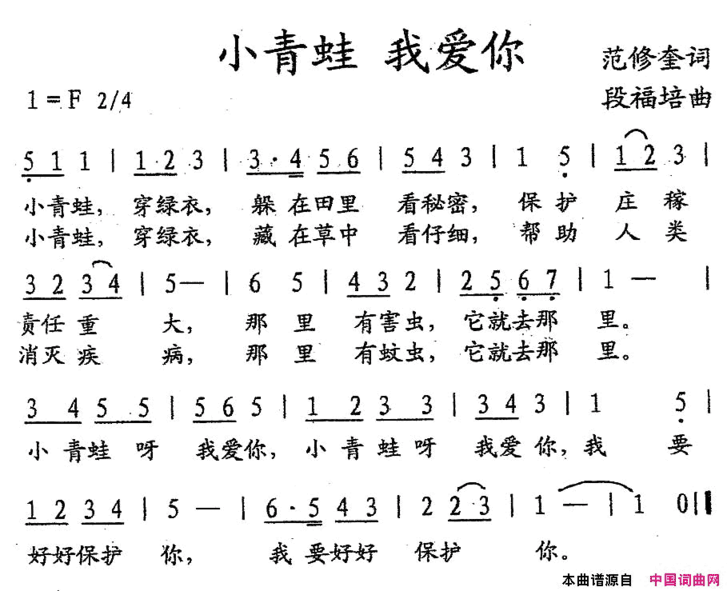 小青蛙 我爱你
范修奎词
1=F 2/4
段福培曲
5 1 1 | 1 2 3 | 3·4 5 6 | 5 4 3 | 1 5 | 1 2 3 |
小青蛙, 穿绿衣, 躲在田里 看秘密, 保护 庄稼
小青蛙, 穿绿衣, 藏在草中 看仔细, 帮助 人类
3 2 3 4 | 5— | 6 5 | 4 3 2 | 2 5 6 7 | 1 — |
责任重 大, 那里 有害虫, 它就去那 里。
消灭疾 病, 那里 有蚊虫, 它就去那 里。
3 4 5 5 | 5 6 5 | 1 2 3 3 | 3 4 3 | 1 5 |
小青蛙呀 我爱你, 小青蛙呀 我爱你, 我 要
1 2 3 4 | 5 — | 6·5 4 3 | 2 2 3 | 1 — | 1 0 ‖
好好保护 你, 我要好好 保护 你。
本曲谱源自 中国词曲网